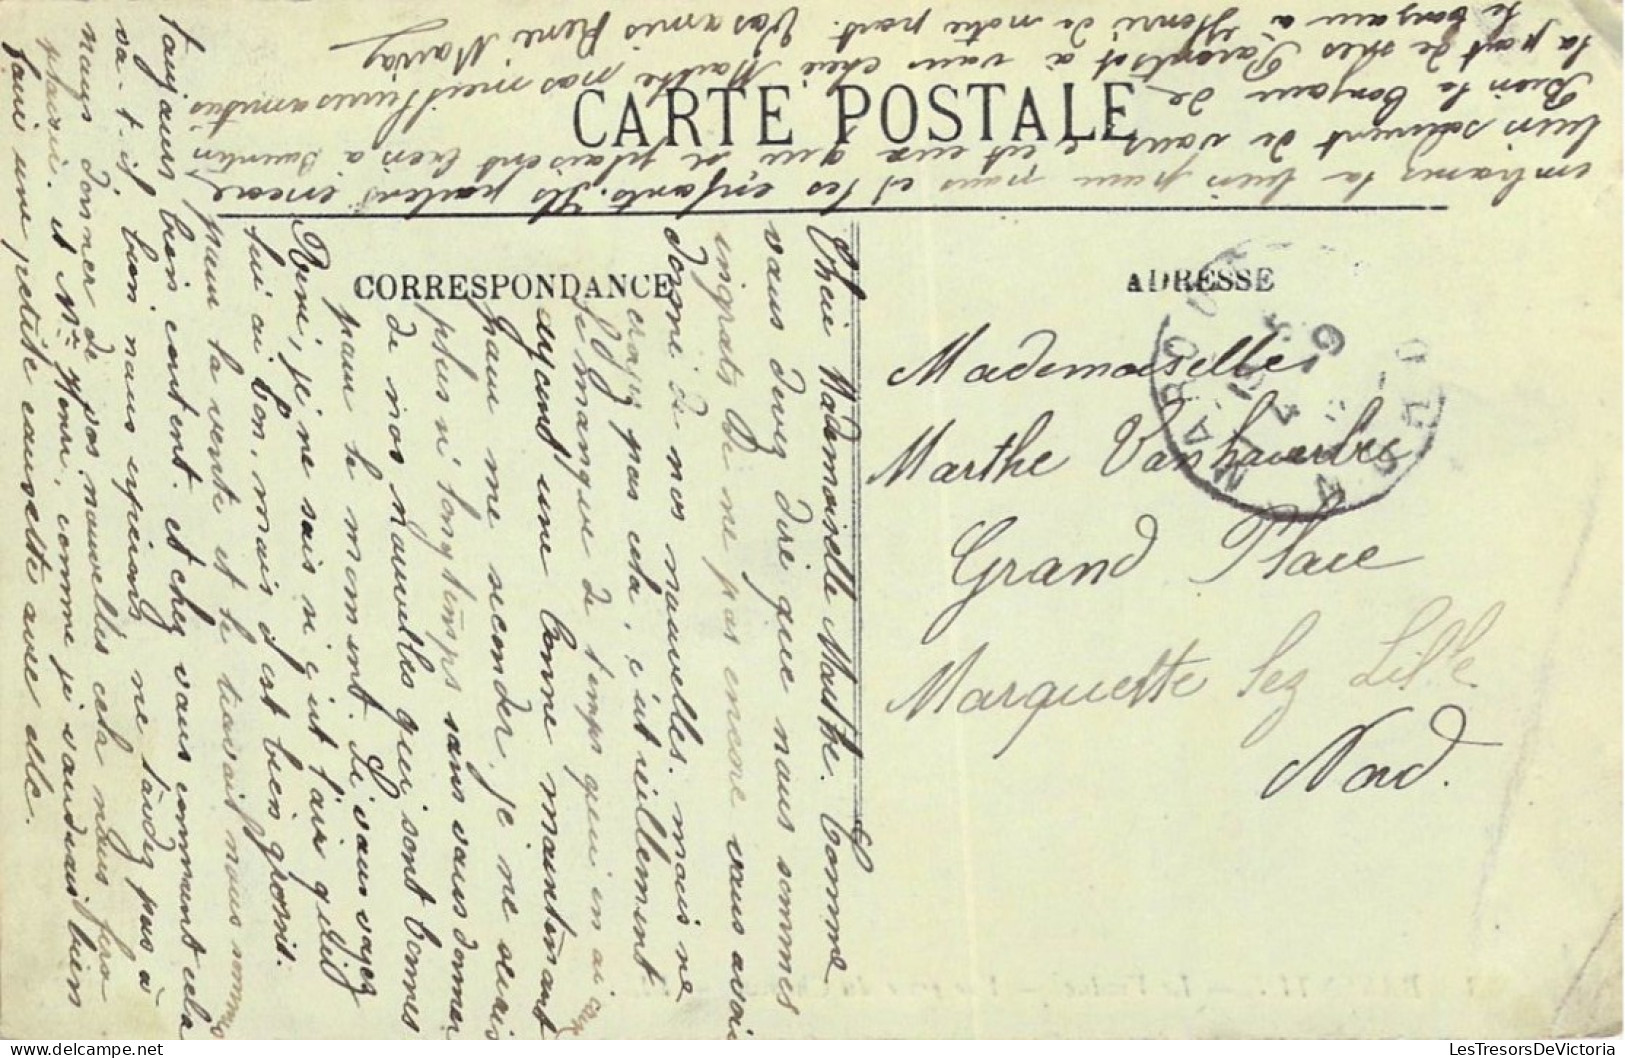 CARTE POSTALE
CORRESPONDANCE
ADRESSE
Mademoiselle
Marthe Vanhaverbes
Grand Place
Marquette lez Lille
Nord.
Cher Mademoiselle Marthe. Comme
vous devez dire que nous sommes
ingrats de ne pas encore vous avoir
donné de nos nouvelles. mais ne
croyez pas cela, c'est réellement
le manque de temps qui en ai
ayant une bonne maintenant
pour me seconder, je ne serais
plus si longtemps sans vous donner
de nos nouvelles qui sont bonnes
pour le moment. Si vous voyez
René, je ne sais si c'est l'air qu'il
lui ai bon, mais il est bien grossit.
pour la vente et le travail nous sommes
toujours bien content. et chez vous comment cela
va-t-il, bien nous espérons ne tardez pas à
nous donner de vos nouvelles cela nous fera
plaisir. et Mme Henri, comme je voudrais bien
faire une petite causette avec elle.
embrassez la bien pour nous et les enfants. Ils parlent encore
bien souvent de vous c'est eux qui se plaisent bien à
Bien le bonjour de
la part de mes Parents et à vous chère Marthe mes meilleures amitiés
le bonjour à Henri de notre part. Vos amis René
LesTresorsDeVictoria